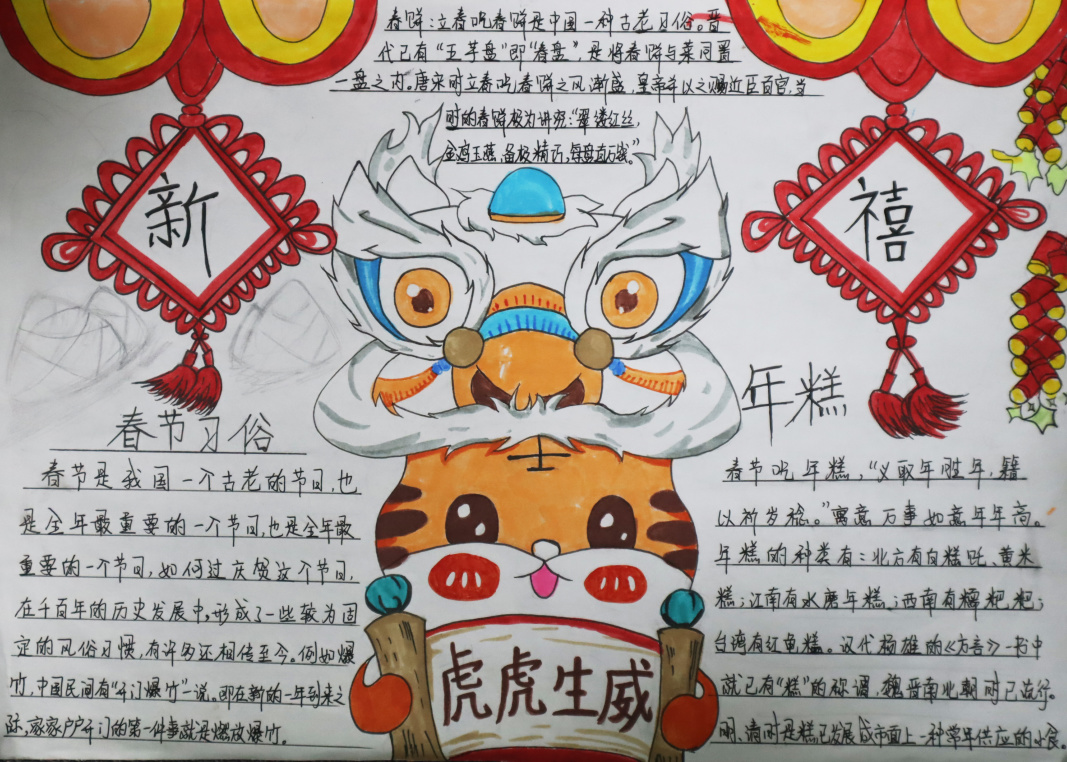 春饼：立春吃春饼是中国一种古老习俗。晋
代已有“五芋盘”即“春盘”，是将春饼与菜同置
一盘之内。唐宋时立春吃春饼之风渐盛，皇帝并以之赐近臣百官，当
时的春饼极为讲究：“翠缕红丝，
金鸡玉燕，备极精巧，每盘直万钱。”
新
禧
春节习俗
春节是我国一个古老的节日，也
是全年最重要的一个节日，也是全年最
重要的一个节日，如何过庆贺这个节日，
在千百年的历史发展中，形成了一些较为固
定的风俗习惯，有许多还相传至今。例如爆
竹，中国民间有“开门爆竹”一说，即在新的一年到来之
际，家家户户开门的第一件事就是燃放爆竹。
年糕
春节吃年糕，“义取年胜年，籍
以祈岁稔。”寓意万事如意年年高。
年糕的种类有：北方有白糕饦、黄米
糕；江南有水磨年糕；西南有糯粑粑；
台湾有红龟糕。汉代杨雄的《方言》一书中
就已有“糕”的称谓，魏晋南北朝时已流行。
明、清时是糕已发展成市面上一种常年供应的小食。
王
虎虎生威